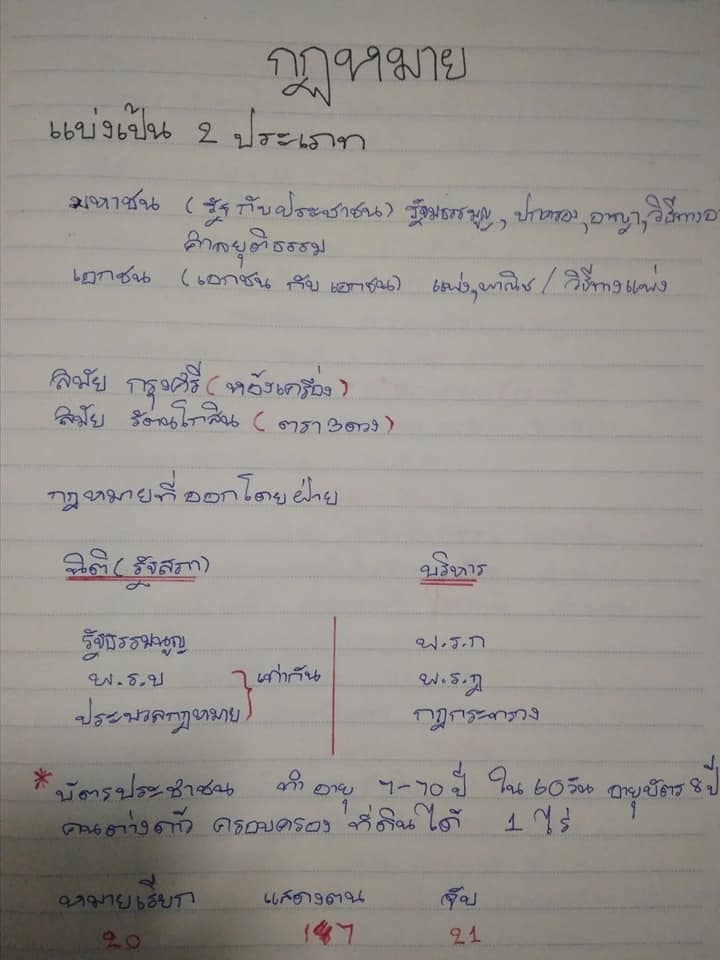 กฎหมาย
แบ่งเป็น 2 ประเภท
มหาชน (รัฐ กับ ประชาชน) รัฐธรรมนูญ, ปกครอง, อาญา, วิธีทางอ
ศาลยุติธรรม
เอกชน (เอกชน กับ เอกชน) แพ่ง, พาณิช / วิธีทางแพ่ง
สมัย กรุงศรี (
สมัย รัตนโกสิน (ตรา 3 ดวง)
กฎหมายที่ออกโดยฝ่าย
นิติ (รัฐสภา) บริหาร
รัฐธรรมนูญ พ.ร.ก
พ.ร.บ เท่ากัน พ.ร.ฎ
ประมวลกฎหมาย กฎกระทรวง
* บัตรประชาชน ทำ อายุ 7-70 ปี ใน 60 วัน อายุบัตร 8 ปี
คนต่างด้าว ครอบครอง ที่ดินได้ 1 ไร่
หมายเรียก แสดงตน จับ
20 17 21